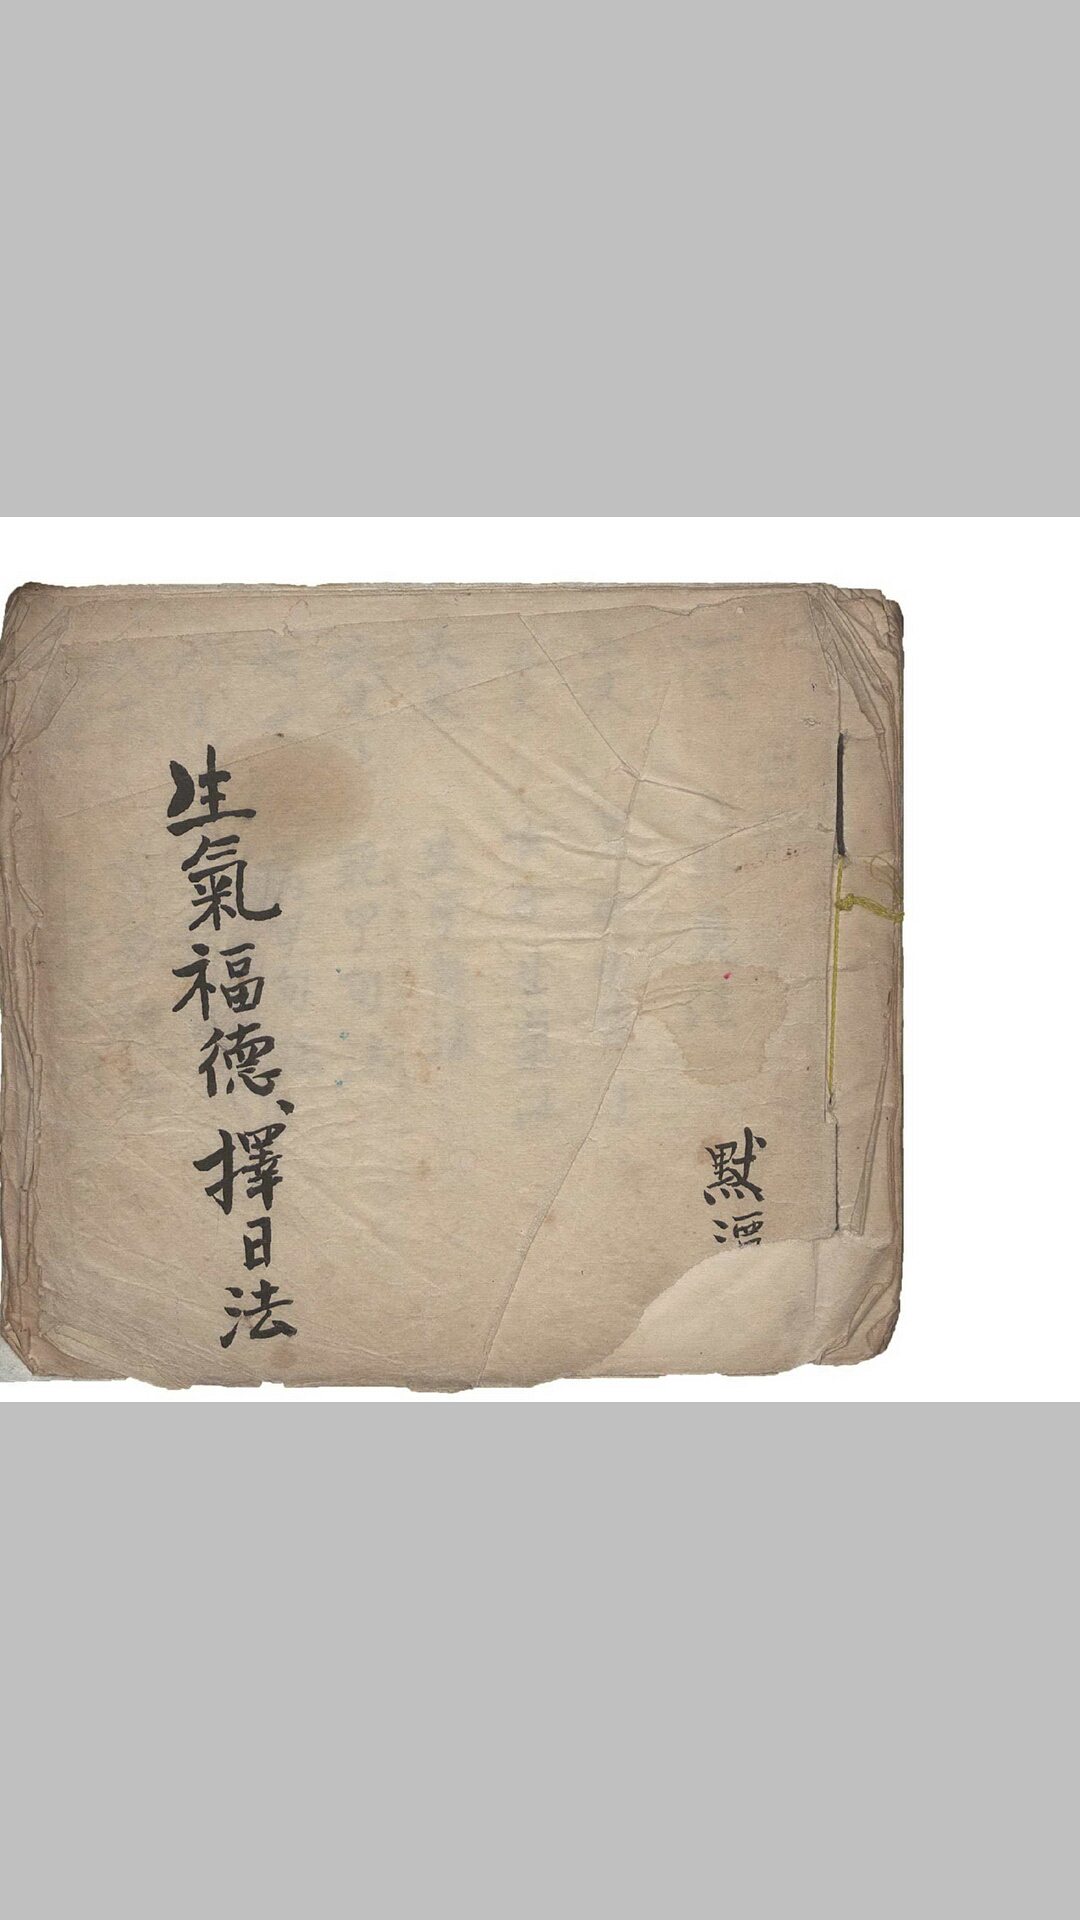 默
生氣福德、擇日法